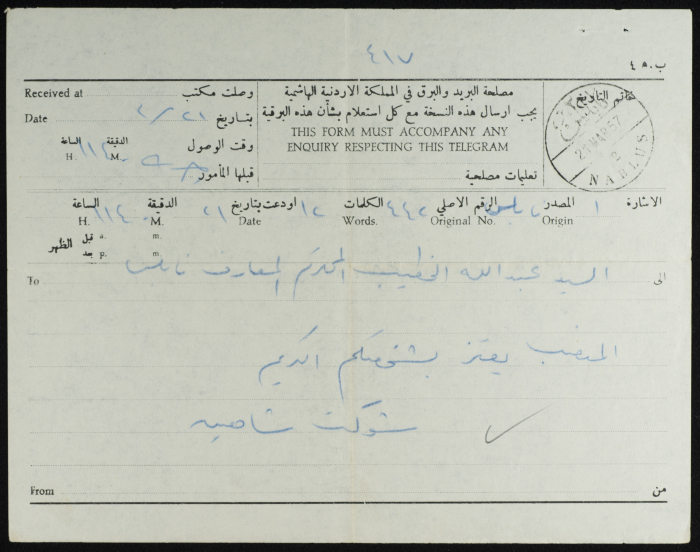 ٤١٧
ب.٥ ٤
Received at وصلت مكتب
Date بتاريخ ٢١/٣
وقت الوصول الدقيقة الساعة
H. M.
قبلها المأمور
مصلحة البريد والبرق في المملكة الاردنية الهاشمية
يجب ارسال هذه النسخة مع كل استعلام بشأن هذه البرقية
THIS FORM MUST ACCOMPANY ANY
ENQUIRY RESPECTING THIS TELEGRAM
خاتم التاريخ
21 MAR 57
2
NABLUS
نابلس
تعليمات مصلحية
الاشارة ١ المصدر نابلس الرقم الاصلي ٤٤٢ الكلمات ١٢ اودعت بتاريخ ٢١ الدقيقة الساعة ١١٤٠
Origin Original No. Words. Date M. H.
قبل a. m.
الظهر
بعد p. m.
الى السيد عبدالله الخطيب المحترم المعارف نابلس
To
المنصب يعتز بشخصكم الكريم
شوكت شاهين
From من